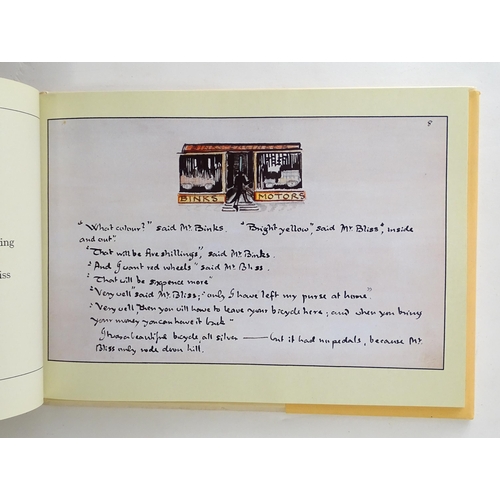 8
BINKS MOTORS
"What colour?" said Mr. Binks. "Bright yellow," said Mr. Bliss, "inside
and out".
"That will be five shillings", said Mr. Binks.
"And I want red wheels" said Mr. Bliss.
"That will be sixpence more"
"Very well" said Mr. Bliss; "only I have left my purse at home."
"Very well, then you will have to leave your bicycle here; and when you bring
your money you can have it back"
It was a beautiful bicycle, all silver — but it had no pedals, because Mr.
Bliss only rode down hill.
ing
iss